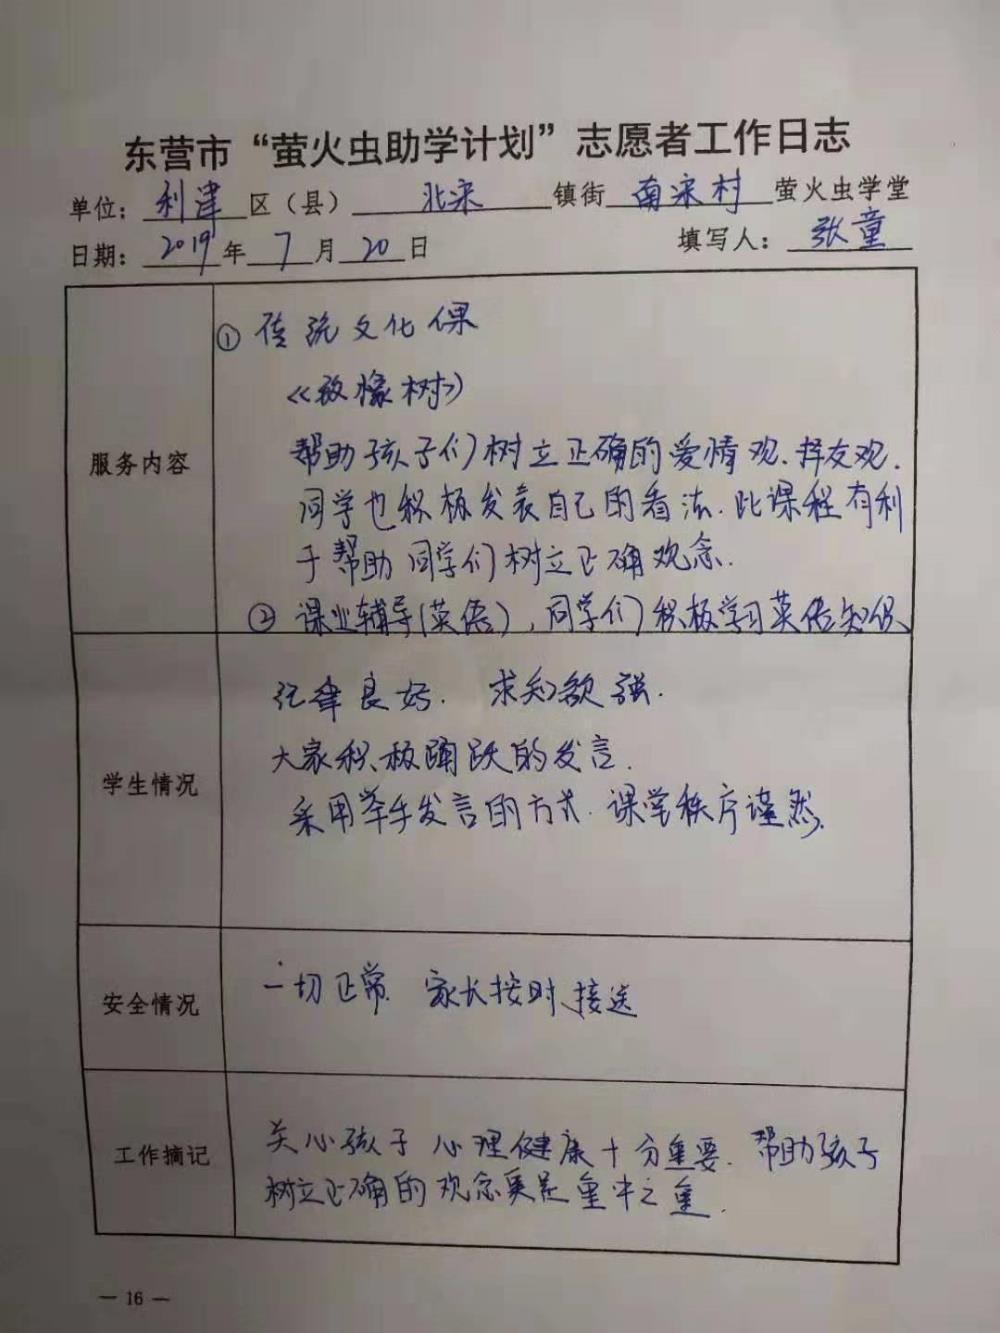 东营市“萤火虫助学计划”志愿者工作日志
单位：利津区（县）北宋镇街南宋村萤火虫学堂
日期：2019年7月20日 填写人：张童
服务内容
① 传统文化课
《致橡树》
帮助孩子们树立正确的爱情观、择友观.
同学也积极发表自己的看法.此课程有利
于帮助同学们树立正确观念.
② 课业辅导(英语)，同学们积极学习英语知识
学生情况
纪律良好. 求知欲强.
大家积极踊跃的发言.
采用举手发言的方式.课堂秩序谨然.
安全情况
一切正常 家长按时接送
工作摘记
关心孩子心理健康十分重要. 帮助孩子
树立正确的观念更是重中之重.
— 16 —